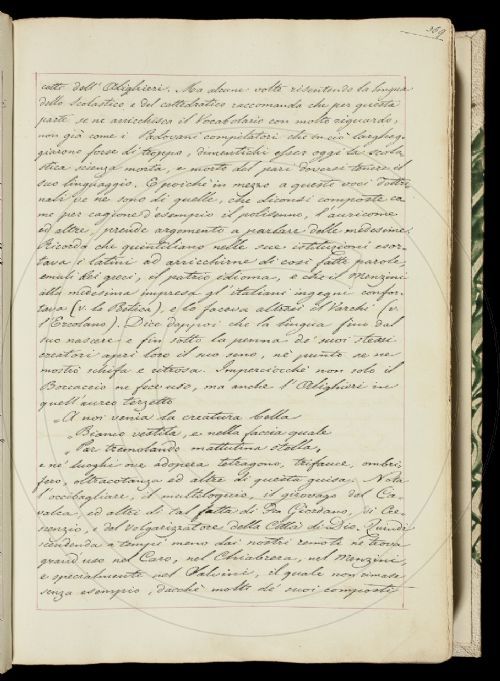 369
catti dell'Alighieri. Ma alcune volte risentendo la lingua
dello scolastico e del cattedratico raccomanda che per questa
parte se ne arricchisca il Vocabolario con molto riguardo,
non già come i Padovani compilatori che in ciò largheg-
giarono forse di troppo, dimentichi esser oggi la scola-
stica scienza morta, e morto del pari doversi tenere il
suo linguaggio. E poichè in mezzo a queste voci Dottri-
nali ve ne sono di quelle, che diconsi composte co-
me per cagione d'esempio il polisenno, l'auricome
ed altre, prende argomento a parlare delle medesime.
Ricorda che Quintiliano nelle sue istituzioni esor-
tava i latini ad arricchirne di così fatte parole,
emuli dei greci, il patrio idioma, e che il Menzini
alla medesima impresa gl'italiani ingegni confor-
tava (v. la Poetica), e lo faceva altresì il Varchi (v.
l'Ercolano). Dice dappoi che la lingua fino dal
suo nascere e fin sotto la penna de' suoi stessi
creatori aprì loro il suo seno, nè punto se ne
mostrò schifa e ritrosa. Imperciocchè non solo il
Boccaccio ne fece uso, ma anche l'Alighieri in
quell'aureo terzetto
„A noi venia la creatura bella
„Bianco vestita, e nella faccia quale
„Par tremolando mattutina stella,
e ne' luoghi ove adopera tetragono, trifauce, ombri-
fero, oltracotanza ed altre di questa guisa. Nota
l'occibagliare, il multiloquio, il girovago del Ca-
valca, ed altri di tal fatta di Fra Giordano, di Cre-
scenzio, e del Volgarizzatore della Città di Dio. Quindi
scendendo a tempi meno dai nostri remoti ne trova
grand'uso nel Caro, nel Chiabrera, nel Menzini,
e specialmente nel Salvini, il quale non rimase
senza esempio, dacchè molti de' suoi composti